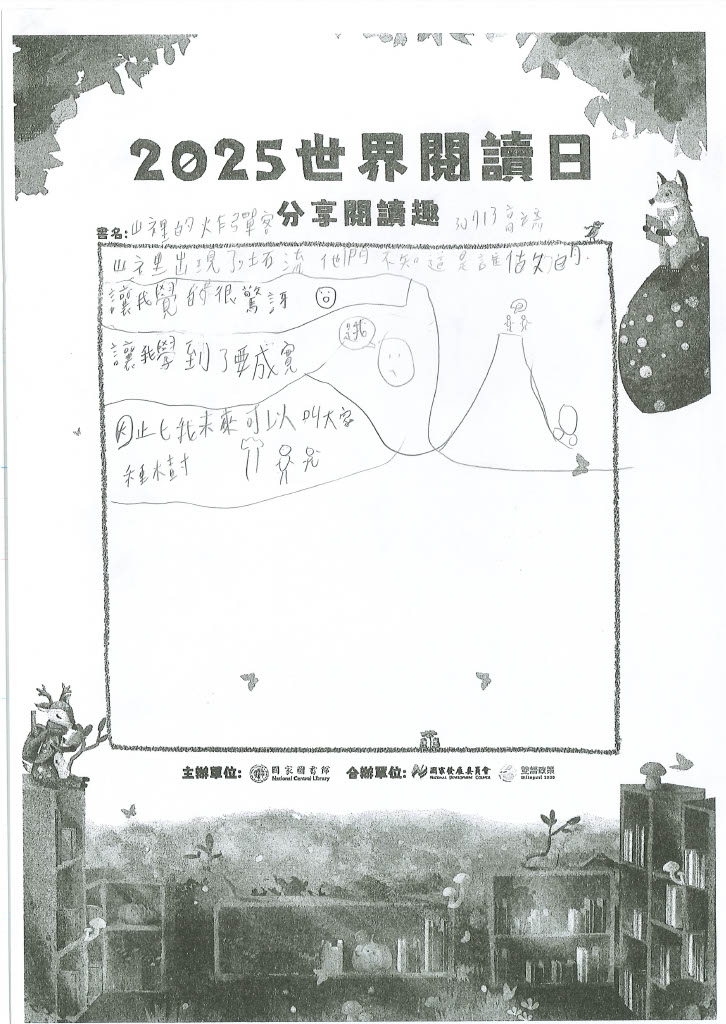 2025世界閱讀日
分享閱讀趣
書名:山裡的炸彈客
山里出現了土石流 他們不知這是誰
讓我覺的很驚訝
讓我學到了要成實
因止匕我未來可以叫大家
種樹
主辦單位: 國家圖書館 National Central Library 合辦單位: 國家發展委員會 NATIONAL DEVELOPMENT COUNCIL 雙語政策 Bilingual 2030